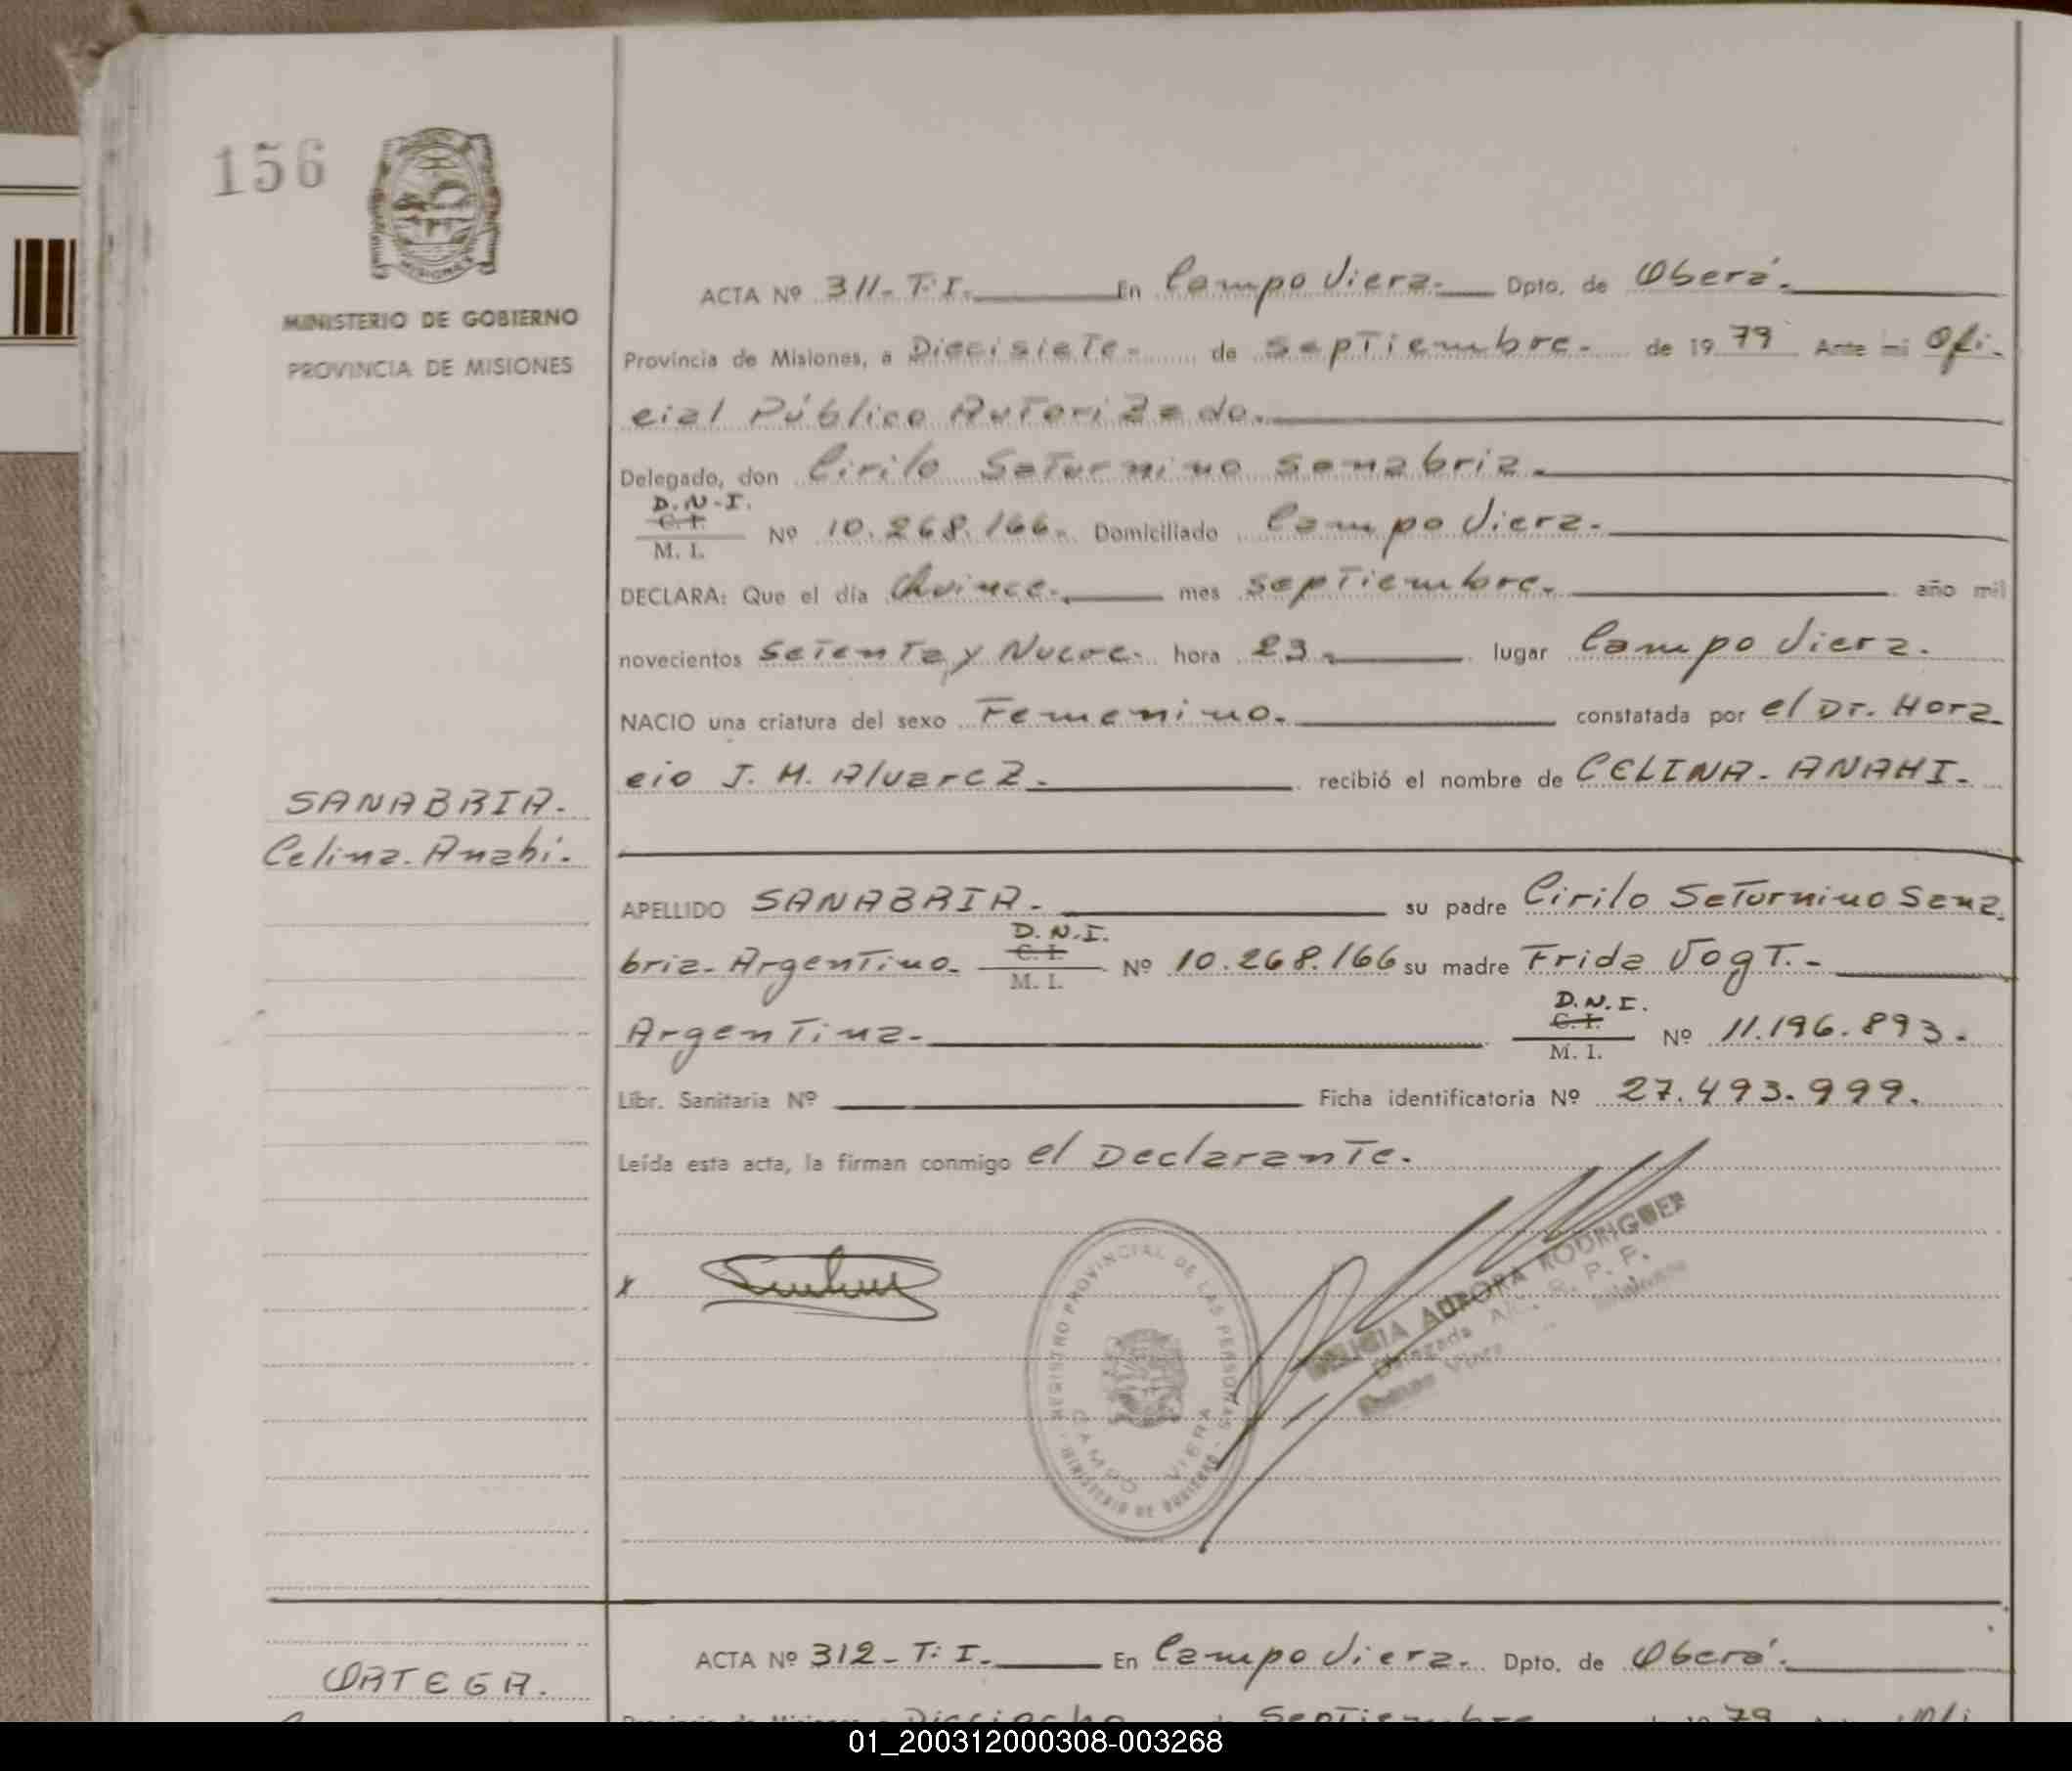 156
MISIONES
MINISTERIO DE GOBIERNO
PROVINCIA DE MISIONES
ACTA Nº 311-T:I. En Campo Viera. Dpto. de Oberá.
Provincia de Misiones, a Diecisiete. de septiembre. de 1979 Ante mi Ofi-
cial Público Autorizado.
Delegado, don Cirilo Saturnino Sanabria.
D.N.I.
C.I.
M. I. Nº 10.268.166. Domiciliado Campo Viera.
DECLARA: Que el día Quince. mes septiembre. año mil
novecientos Setenta y Nueve. hora 23. lugar Campo Viera.
NACIO una criatura del sexo Femenino. constatada por el Dr. Hora
cio J. M. Alvarez. recibió el nombre de CELINA. ANAHI.
SANABRIA.
Celina. Anahi.
APELLIDO SANABRIA. su padre Cirilo Saturnino Sana
bria. Argentino. D.N.I. C.I. M. I. Nº 10.268.166 su madre Frida Vogt.
Argentina. D.N.I. C.I. M. I. Nº 11.196.893.
Libr. Sanitaria Nº Ficha identificatoria Nº 27.493.999.
Leída esta acta, la firman conmigo el Declarante.
x
REGISTRO PROVINCIAL DE LAS PERSONAS
MINISTERIO DE GOBIERNO
CAMPO VIERA
AURORA RODRIGUEZ
Delegada
R. P. P.
Viera
ACTA Nº 312-T:I. En Campo Viera. Dpto. de Oberá.
ORTEGA.
Dieciocho Septiembre 79
01_200312000308-003268